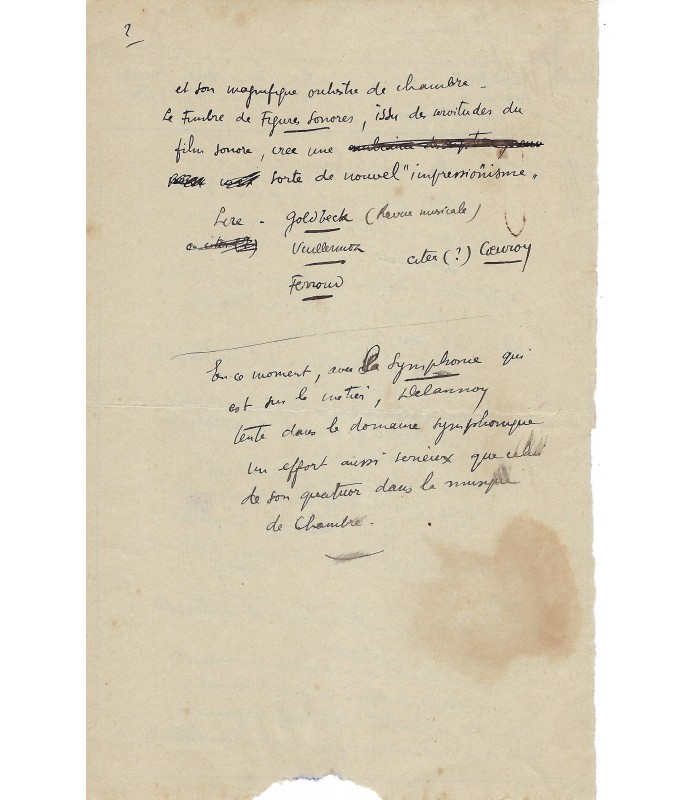 2
et son magnifique orchestre de chambre -
Le Timbre de Figures Sonores, issu des servitudes du
film sonore, crée une
sorte de nouvel "impressionisme"
Lire - Goldbeck (Revue musicale)
Vuillermoz citer (?) Cœuroy
Ferroud
En ce moment, avec la Symphonie qui
est sur le métier, Delannoy
tente dans le domaine symphonique
un effort aussi sérieux que celui
de son quatuor dans la musique
de Chambre.